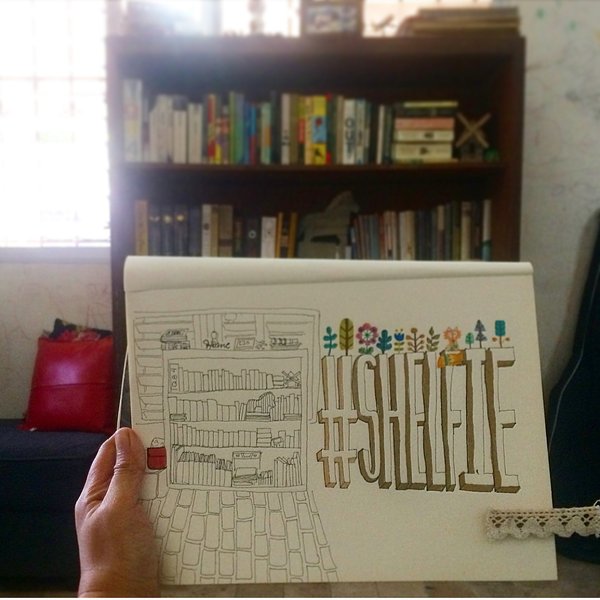 Home
#SHELFIE